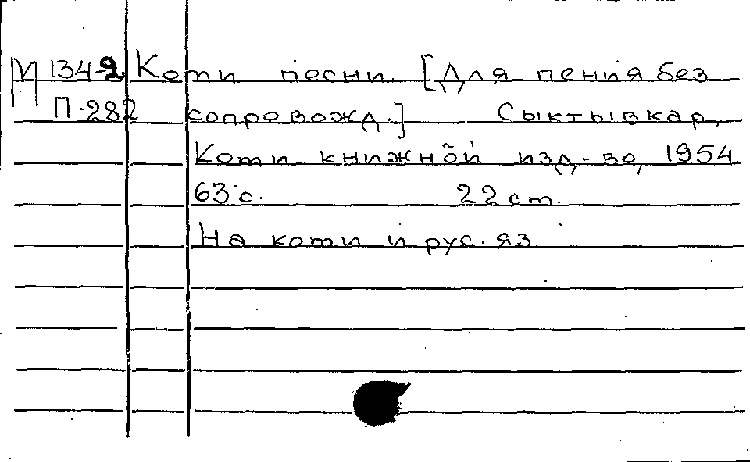 М 134-2 Коми песни. [Для пения без
П-282 сопровожд.] Сыктывкар,
Коми книжной изд-во, 1954
63 с. 22 см.
На коми и рус. яз.